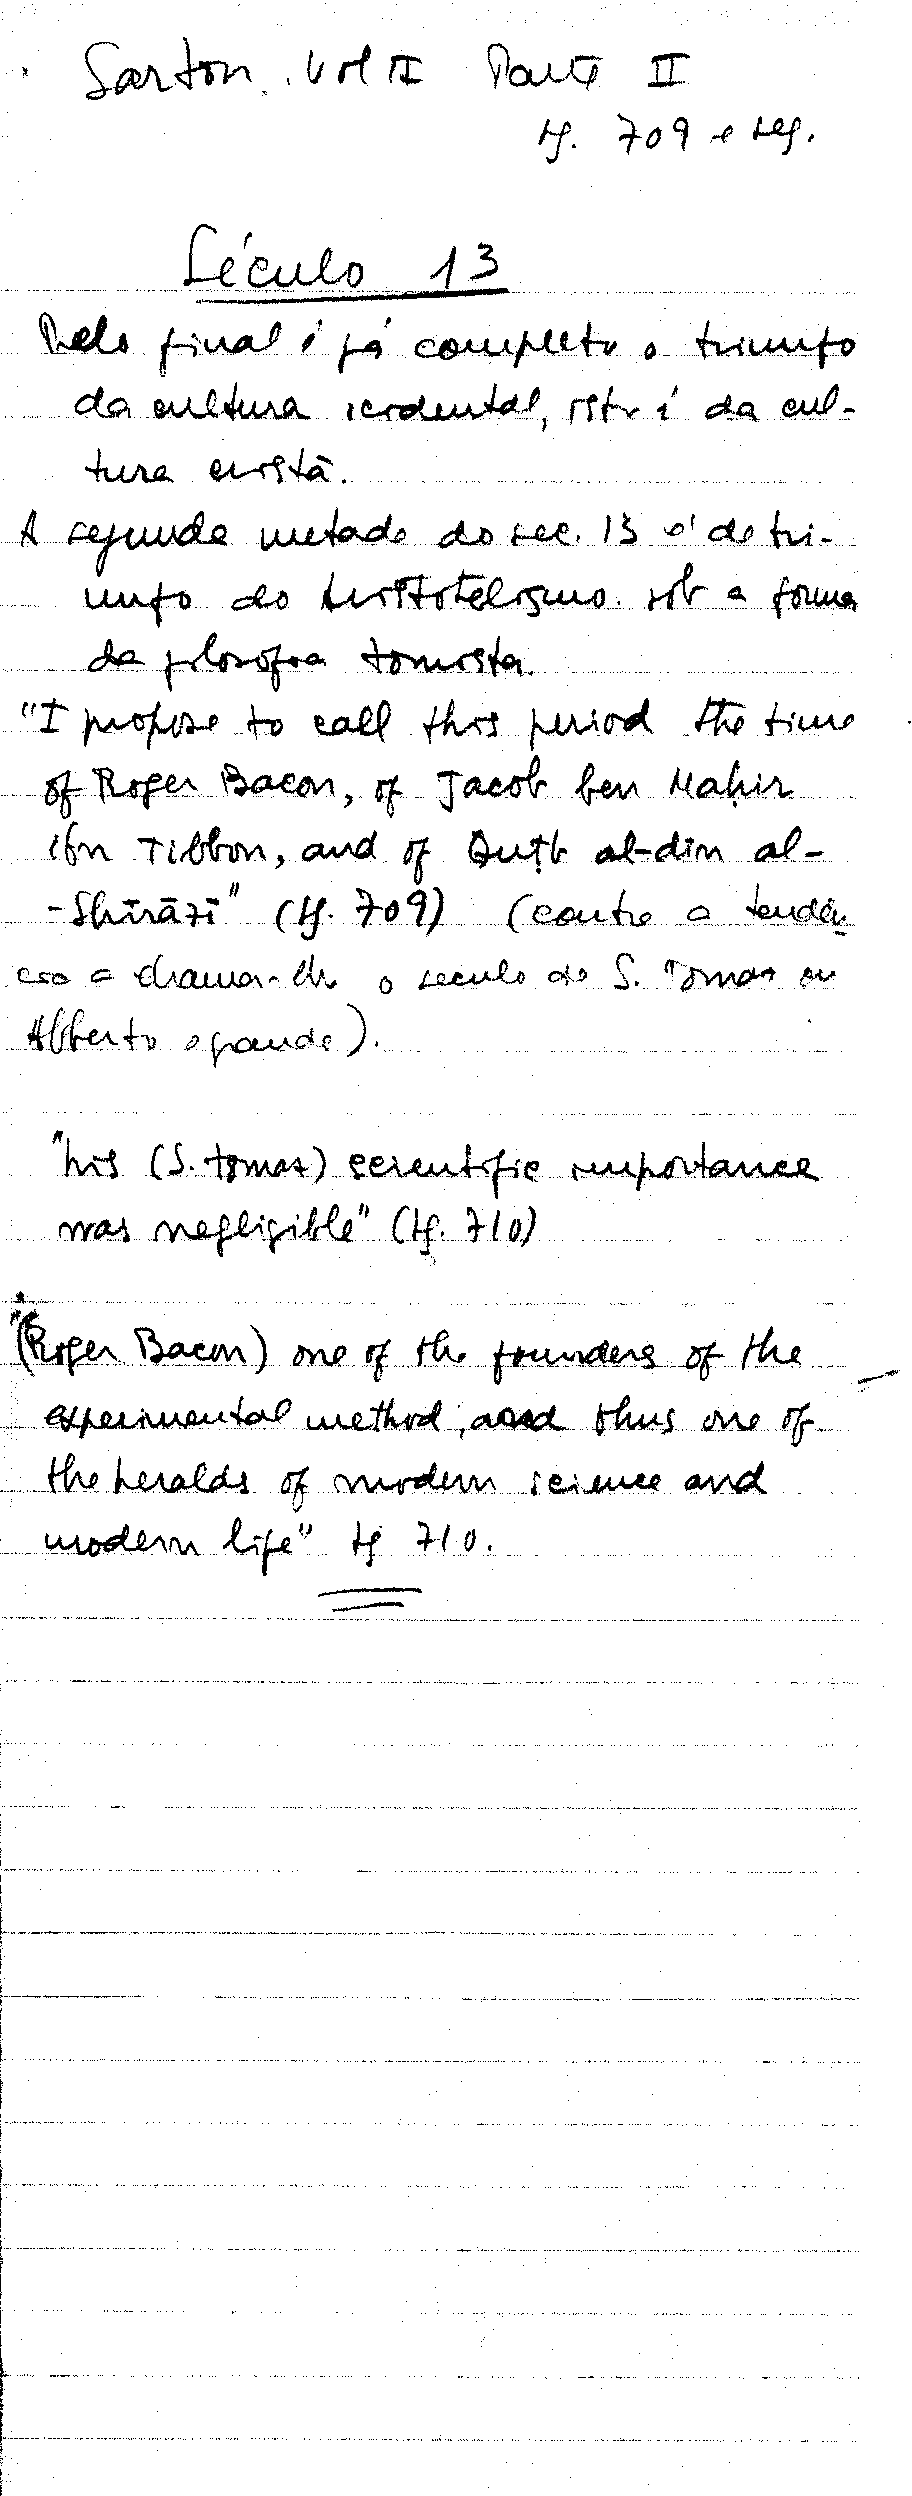 Sarton. Vol II Parte II
pg. 709 e seg.
Século 13
Pelo final é já completo o triunfo
da cultura ocidental, isto é da cul-
tura cristã.
A segunda metade do sec. 13 é do tri-
unfo do Aristotelismo sob a forma
da filosofia tomista.
"I propose to call this period the time
of Roger Bacon, of Jacob ben Mahir
ibn Tibbon, and of Quṭb al-din al-
-Shīrāzī" (pg. 709) (contra a tendên-
cia a chamar-lhe o século de S. Tomas ou
Alberto o grande).
"his (S. Tomas) scientific importance
was negligible" (pg. 710)
"(Roger Bacon) one of the founders of the
experimental method, and thus one of
the heralds of modern science and
modern life" pg 710.